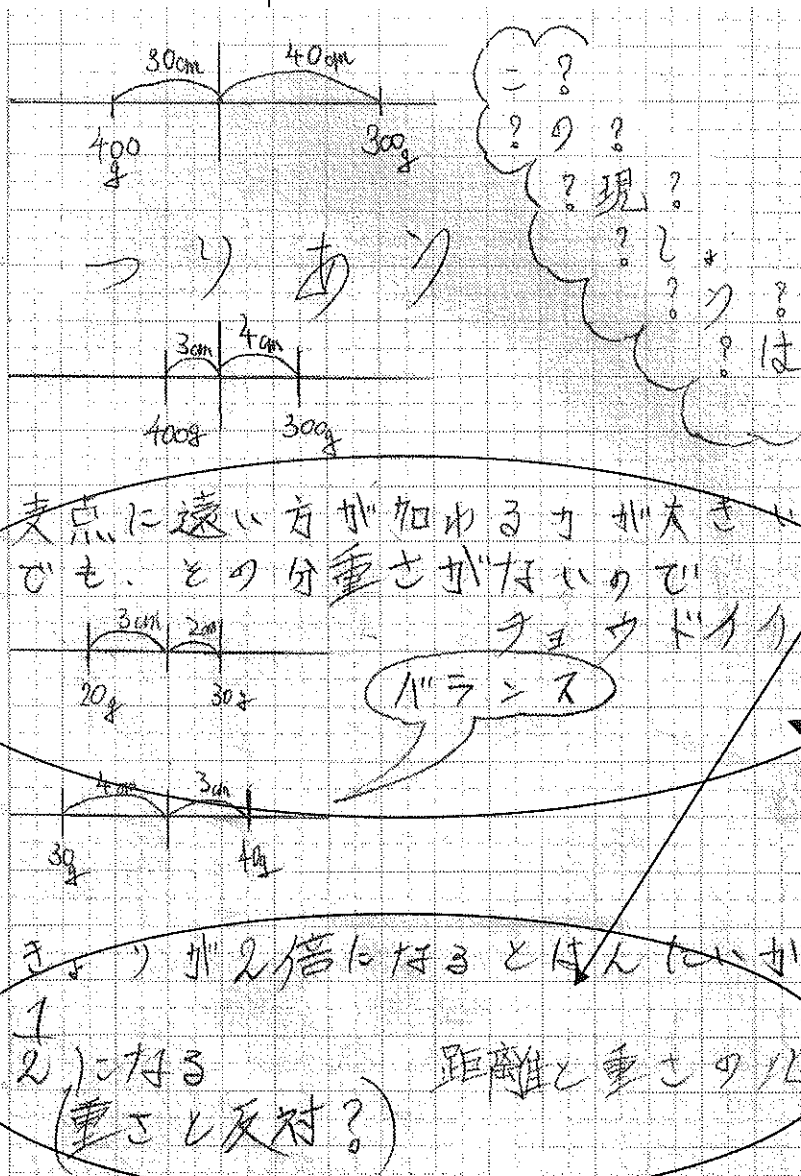 30cm 40cm
400g 300g
こ ?
? の ?
? 現 ?
? し 。
? り ?
? は
つりあり
3cm 4cm
400g 300g
支点に遠い方が加わる力が大きい
でも、その分重さがないので
チョウドイイ
3cm 2cm
20g 30g
バランス
4cm 3cm
30g 40g
きょりが2倍になるとはんたいが
1
2になる
距離と重さのル
(重さと反対?)